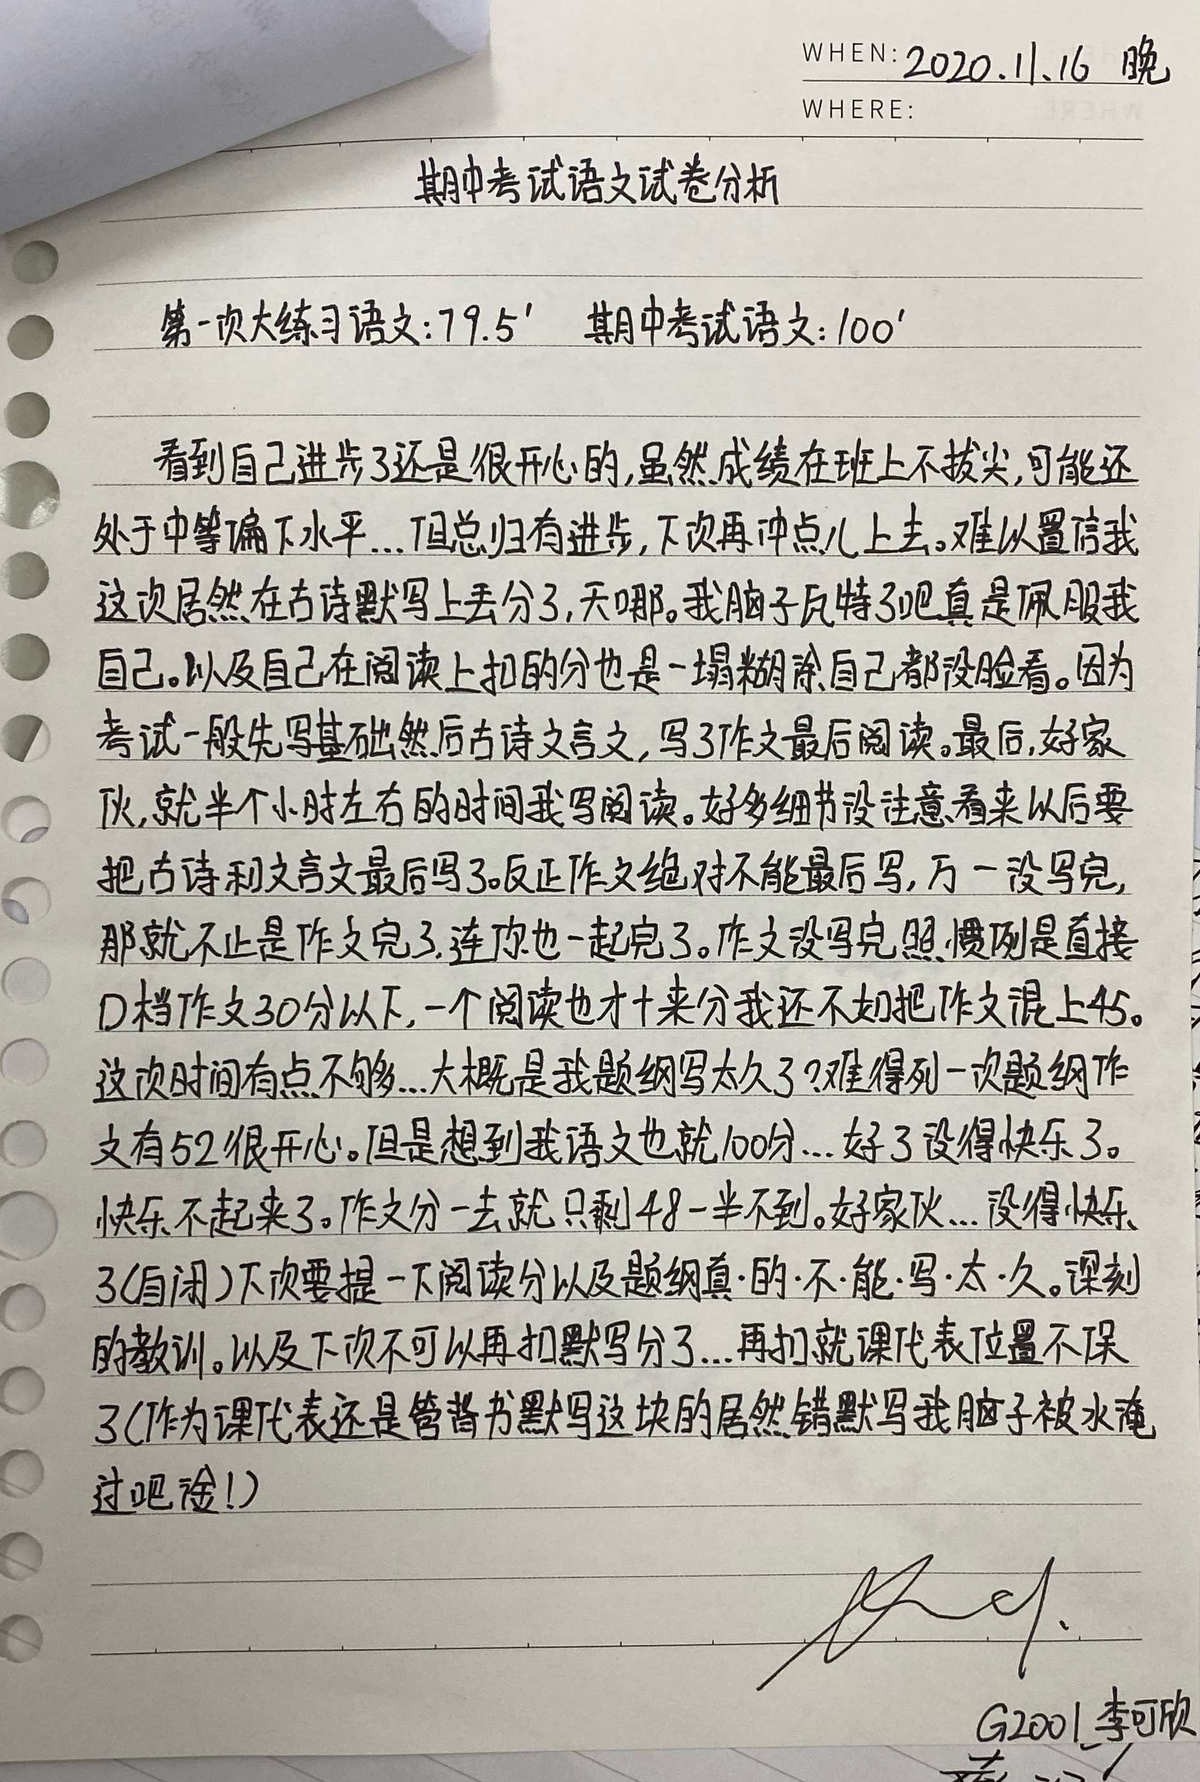 WHEN: 2020.11.16 晚
WHERE:
期中考试语文试卷分析
第一次大练习语文:79.5' 期中考试语文:100'
看到自己进步了还是很开心的,虽然成绩在班上不拔尖,可能还
处于中等偏下水平...但总归有进步,下次再冲点儿上去。难以置信我
这次居然在古诗默写上丢分了,天哪。我脑子瓦特了吧真是佩服我
自己。以及自己在阅读上扣的分也是一塌糊涂自己都没脸看。因为
考试一般先写基础然后古诗文言文,写了作文最后阅读。最后,好家
伙,就半个小时左右的时间我写阅读。好多细节没注意看来以后要
把古诗和文言文最后写了。反正作文绝对不能最后写,万一没写完,
那就不止是作文完了,连你也一起完了。作文没写完照惯例是直接
D档作文30分以下,一个阅读也才十来分我还不如把作文混上45。
这次时间有点不够...大概是我题纲写太久了?难得列一次题纲作
文有52很开心。但是想到我语文也就100分...好了没得快乐了。
快乐不起来了。作文分一去就只剩48一半不到。好家伙...没得快乐
了(自闭)下次要提一下阅读分以及题纲真·的·不·能·写·太·久。深刻
的教训。以及下次不可以再扣默写分了...再扣就课代表位置不保
了(作为课代表还是管背书默写这块的居然错默写我脑子被水淹
过吧淦!)
G2001 李可欣